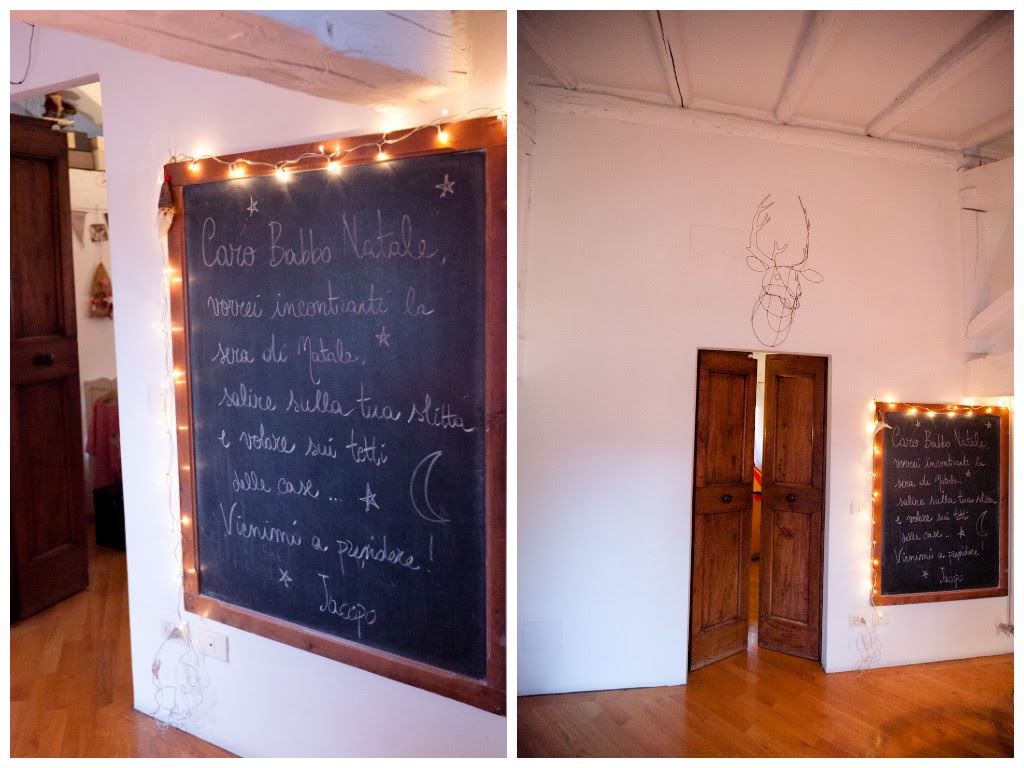 Caro Babbo Natale,
vorrei incontrarti la
sera di Natale,
salire sulla tua slitta
e volare sui tetti
delle case ...
Vienimi a prendere!
Jacopo
Caro Babbo Natale,
vorrei incontrarti la
sera di Natale,
salire sulla tua slitta
e volare sui tetti
delle case ...
Vienimi a prendere!
Jacopo